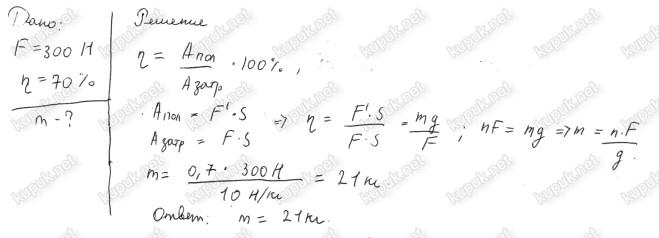 Дано:
F = 300 Н
η = 70 %
m - ?
Решение
η = Aпол / Aзатр · 100%,
Aпол = F'·S
Aзатр = F·S
=> η = F'·S / F·S = mg / F ; ηF = mg => m = η·F / g.
m = 0,7 · 300 Н / 10 Н/кг = 21 кг
Ответ: m = 21 кг.
kupuk.net